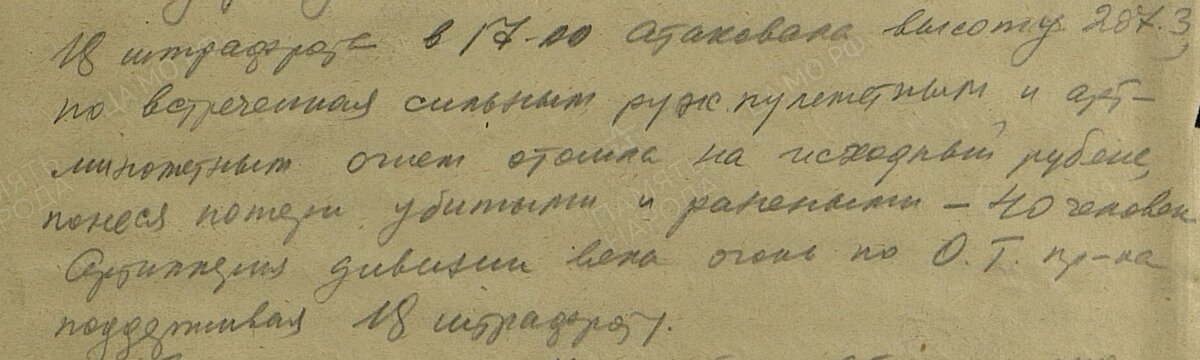 18 штрафрота в 17-00 атаковала высоту 287.3,
но встреченная сильным руж. пулеметным и арт-
минометным огнем отошла на исходный рубеж,
понеся потери убитыми и ранеными – 40 человек
Артиллерия дивизии вела огонь по О.Т. пр-ка
поддерживая 18 штрафроту.